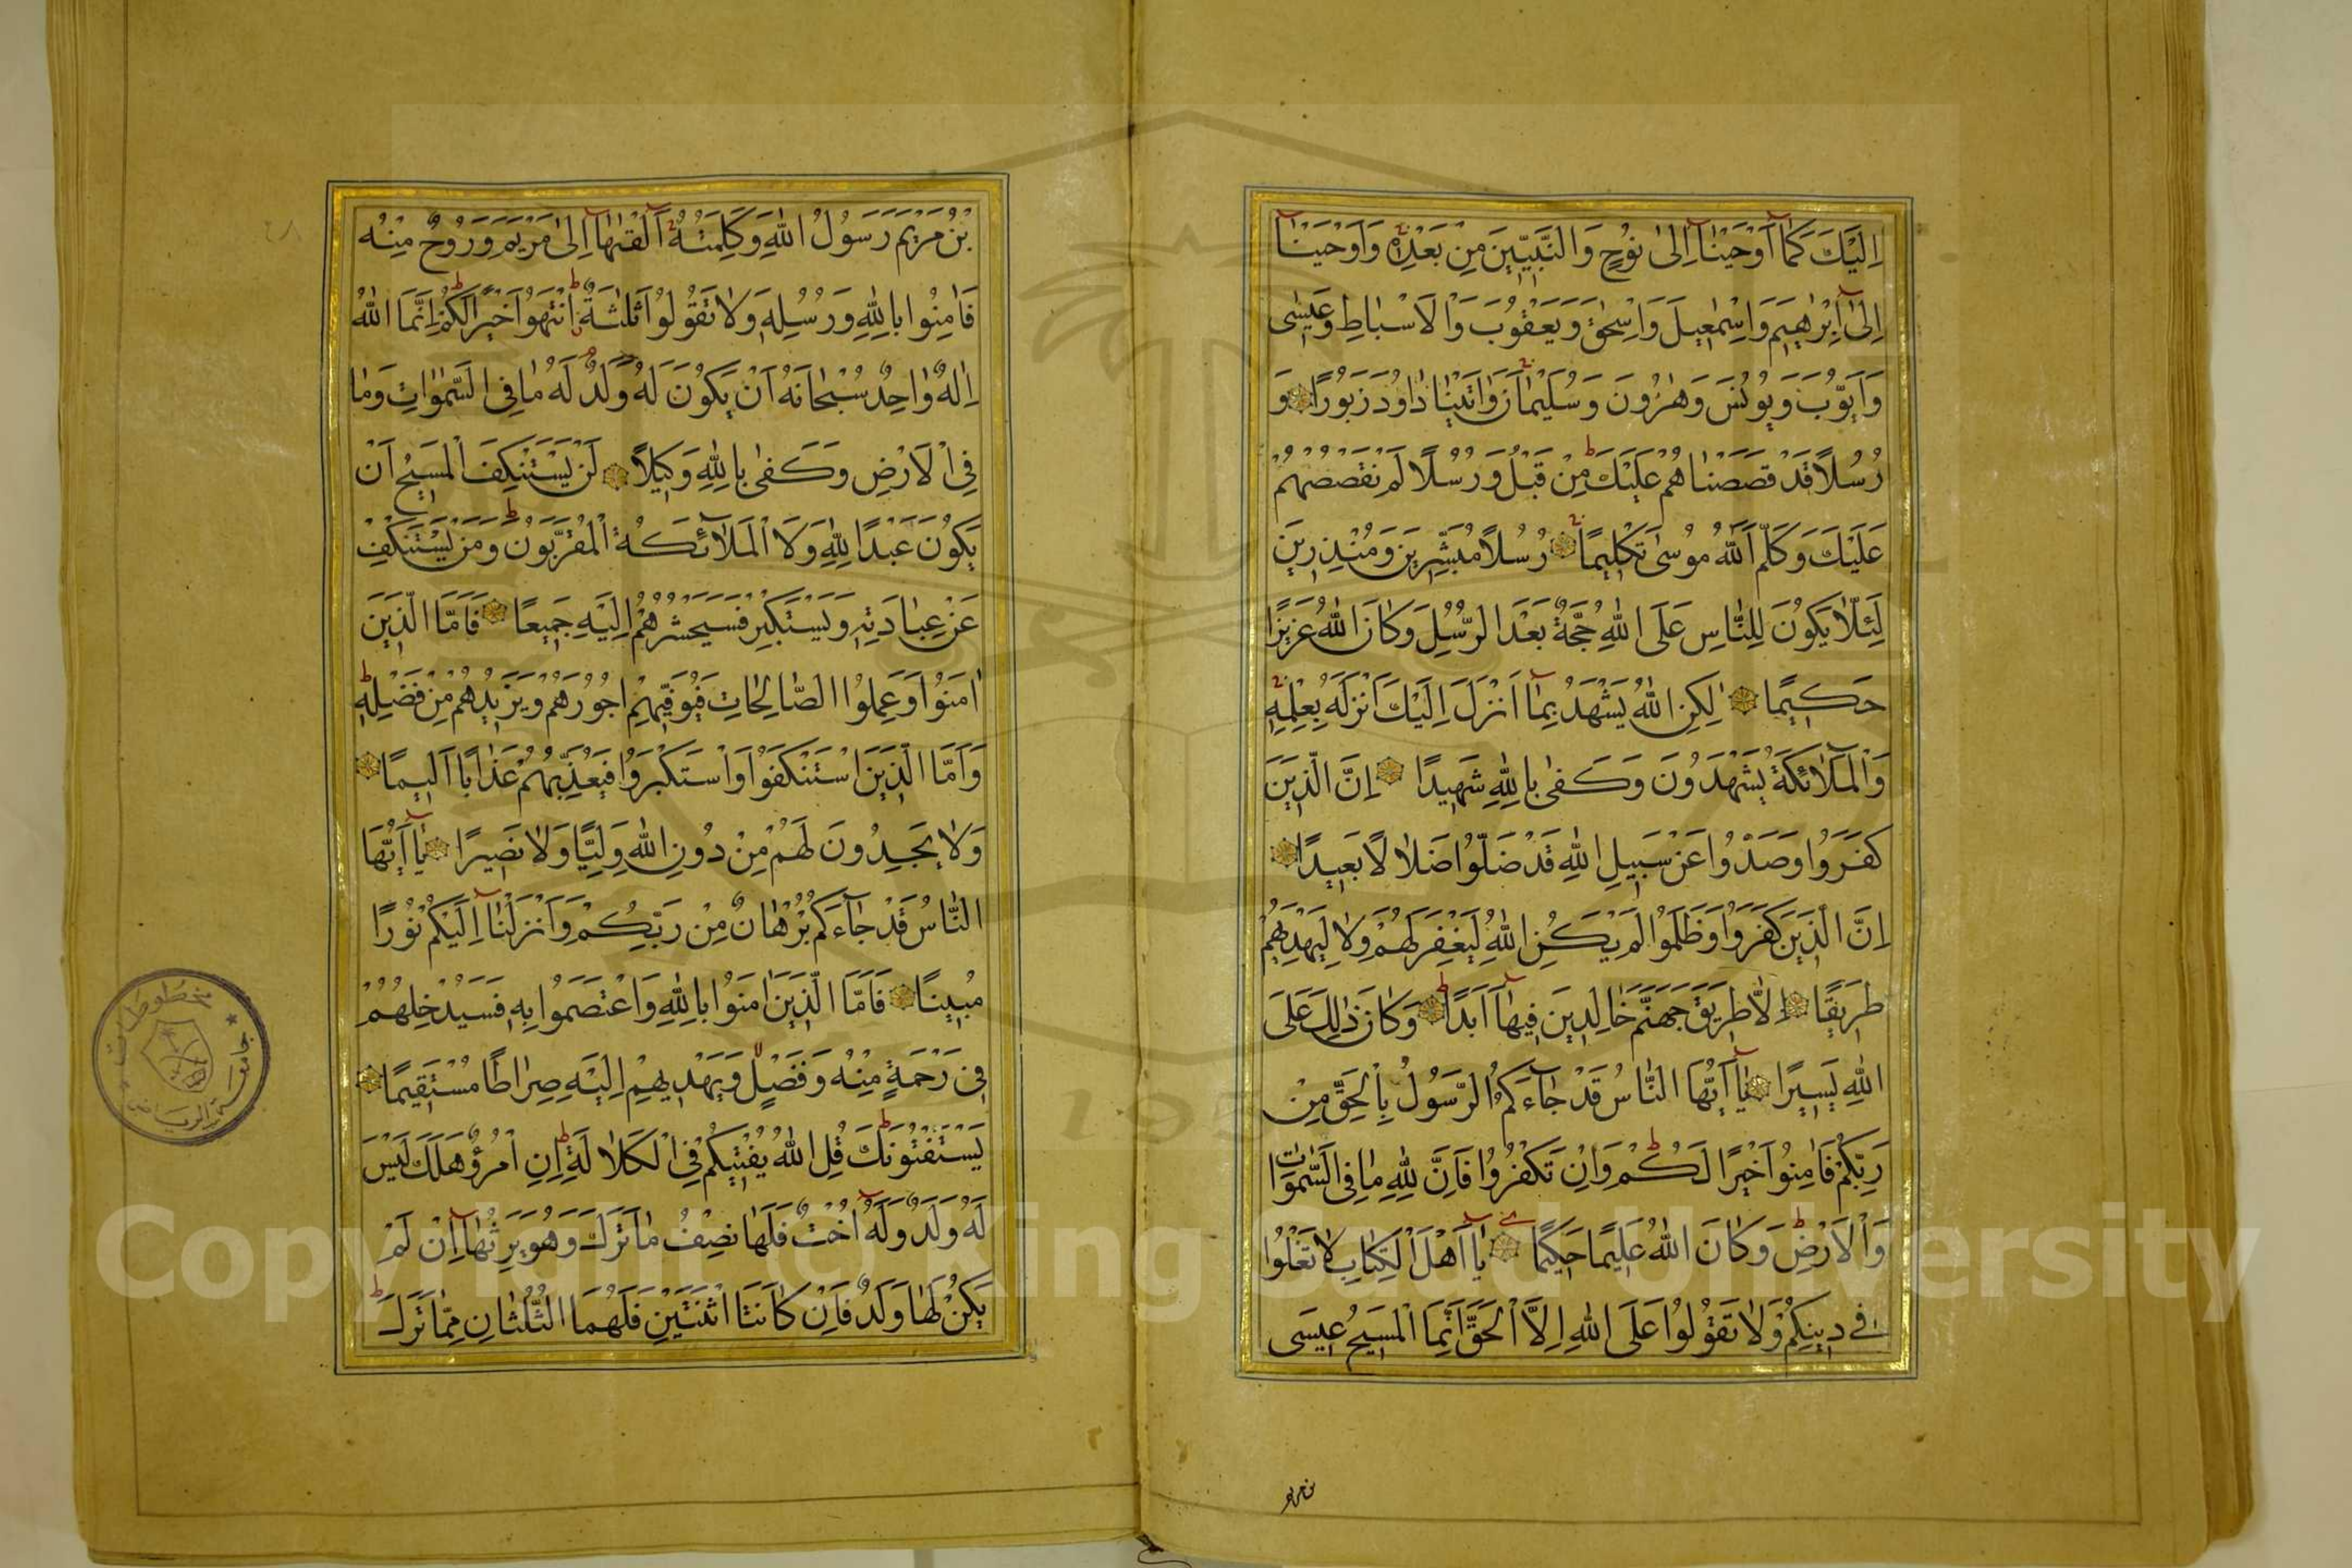 اِلَيْكَ كَمَٓا اَوْحَيْنَٓا اِلٰى نُوحٍ وَالنَّبِيّٖنَ مِنْ بَعْدِهٖ وَاَوْحَيْنَٓا
اِلٰٓى اِبْرٰهٖيمَ وَاِسْمٰعٖيلَ وَاِسْحٰقَ وَيَعْقُوبَ وَالْاَسْبَاطِ وَعٖيسٰى
وَاَيُّوبَ وَيُونُسَ وَهٰرُونَ وَسُلَيْمٰنَ وَاٰتَيْنَا دَاوُدَ زَبُورًا وَ
رُسُلًا قَدْ قَصَصْنَاهُمْ عَلَيْكَ مِنْ قَبْلُ وَرُسُلًا لَمْ نَقْصُصْهُمْ
عَلَيْكَ وَكَلَّمَ اللّٰهُ مُوسٰى تَكْلٖيمًا رُسُلًا مُبَشِّرٖينَ وَمُنْذِرٖينَ
لِئَلَّا يَكُونَ لِلنَّاسِ عَلَى اللّٰهِ حُجَّةٌ بَعْدَ الرُّسُلِ وَكَانَ اللّٰهُ عَزٖيزًا
حَكٖيمًا لٰكِنِ اللّٰهُ يَشْهَدُ بِمَٓا اَنْزَلَ اِلَيْكَ اَنْزَلَهُ بِعِلْمِهٖ
وَالْمَلٰٓائِكَةُ يَشْهَدُونَ وَكَفٰى بِاللّٰهِ شَهٖيدًا اِنَّ الَّذٖينَ
كَفَرُوا وَصَدُّوا عَنْ سَبٖيلِ اللّٰهِ قَدْ ضَلُّوا ضَلَالًا بَعٖيدًا
اِنَّ الَّذٖينَ كَفَرُوا وَظَلَمُوا لَمْ يَكُنِ اللّٰهُ لِيَغْفِرَ لَهُمْ وَلَا لِيَهْدِيَهُمْ
طَرٖيقًا اِلَّا طَرٖيقَ جَهَنَّمَ خَالِدٖينَ فٖيهَٓا اَبَدًا وَكَانَ ذٰلِكَ عَلَى
اللّٰهِ يَسٖيرًا يَٓا اَيُّهَا النَّاسُ قَدْ جَٓاءَكُمُ الرَّسُولُ بِالْحَقِّ مِنْ
رَبِّكُمْ فَاٰمِنُوا خَيْرًا لَكُمْ وَاِنْ تَكْفُرُوا فَاِنَّ لِلّٰهِ مَا فِي السَّمٰوَاتِ
وَالْاَرْضِ وَكَانَ اللّٰهُ عَلٖيمًا حَكٖيمًا يَٓا اَهْلَ الْكِتَابِ لَا تَغْلُوا
فٖي دٖينِكُمْ وَلَا تَقُولُوا عَلَى اللّٰهِ اِلَّا الْحَقَّ اِنَّمَا الْمَسٖيحُ عٖيسَى
بن مريم
بْنُ مَرْيَمَ رَسُولُ اللّٰهِ وَكَلِمَتُهُ اَلْقٰيهَٓا اِلٰى مَرْيَمَ وَرُوحٌ مِنْهُ
فَاٰمِنُوا بِاللّٰهِ وَرُسُلِهٖ وَلَا تَقُولُوا ثَلٰثَةٌ اِنْتَهُوا خَيْرًا لَكُمْ اِنَّمَا اللّٰهُ
اِلٰهٌ وَاحِدٌ سُبْحَانَهُ اَنْ يَكُونَ لَهُ وَلَدٌ لَهُ مَا فِي السَّمٰوَاتِ وَمَا
فِي الْاَرْضِ وَكَفٰى بِاللّٰهِ وَكٖيلًا لَنْ يَسْتَنْكِفَ الْمَسٖيحُ اَنْ
يَكُونَ عَبْدًا لِلّٰهِ وَلَا الْمَلَٓائِكَةُ الْمُقَرَّبُونَ وَمَنْ يَسْتَنْكِفْ
عَنْ عِبَادَتِهٖ وَيَسْتَكْبِرْ فَسَيَحْشُرُهُمْ اِلَيْهِ جَمٖيعًا فَاَمَّا الَّذٖينَ
اٰمَنُوا وَعَمِلُوا الصَّالِحَاتِ فَيُوَفّٖيهِمْ اُجُورَهُمْ وَيَزٖيدُهُمْ مِنْ فَضْلِهٖ
وَاَمَّا الَّذٖينَ اسْتَنْكَفُوا وَاسْتَكْبَرُوا فَيُعَذِّبُهُمْ عَذَابًا اَلٖيمًا
وَلَا يَجِدُونَ لَهُمْ مِنْ دُونِ اللّٰهِ وَلِيًّا وَلَا نَصٖيرًا يَٓا اَيُّهَا
النَّاسُ قَدْ جَٓاءَكُمْ بُرْهَانٌ مِنْ رَبِّكُمْ وَاَنْزَلْنَٓا اِلَيْكُمْ نُورًا
مُبٖينًا فَاَمَّا الَّذٖينَ اٰمَنُوا بِاللّٰهِ وَاعْتَصَمُوا بِهٖ فَسَيُدْخِلُهُمْ
فٖي رَحْمَةٍ مِنْهُ وَفَضْلٍ وَيَهْدٖيهِمْ اِلَيْهِ صِرَاطًا مُسْتَقٖيمًا
يَسْتَفْتُونَكَ قُلِ اللّٰهُ يُفْتٖيكُمْ فِي الْكَلَالَةِ اِنِ امْرُؤٌ هَلَكَ لَيْسَ
لَهُ وَلَدٌ وَلَهُٓ اُخْتٌ فَلَهَا نِصْفُ مَا تَرَكَ وَهُوَ يَرِثُهَٓا اِنْ لَمْ
يَكُنْ لَهَا وَلَدٌ فَاِنْ كَانَتَا اثْنَتَيْنِ فَلَهُمَا الثُّلُثَانِ مِمَّا تَرَكَ
جامعة الرياض
مخطوطات
Copyright © King Saud University
195